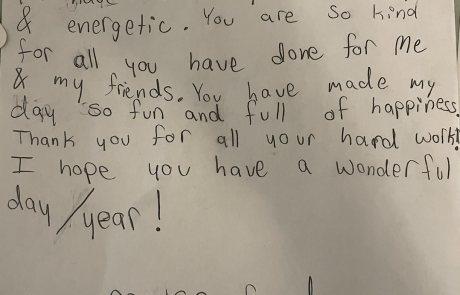 & energetic. You are so kind
for all you have done for me
& my friends. You have made my
day so fun and full of happiness.
Thank you for all your hard work!
I hope you have a wonderful
day/year!